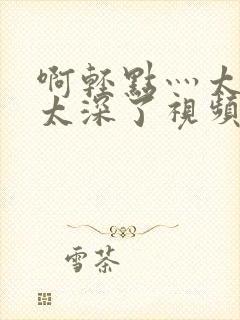 啊輕點灬大
太深了視頻
雪茶